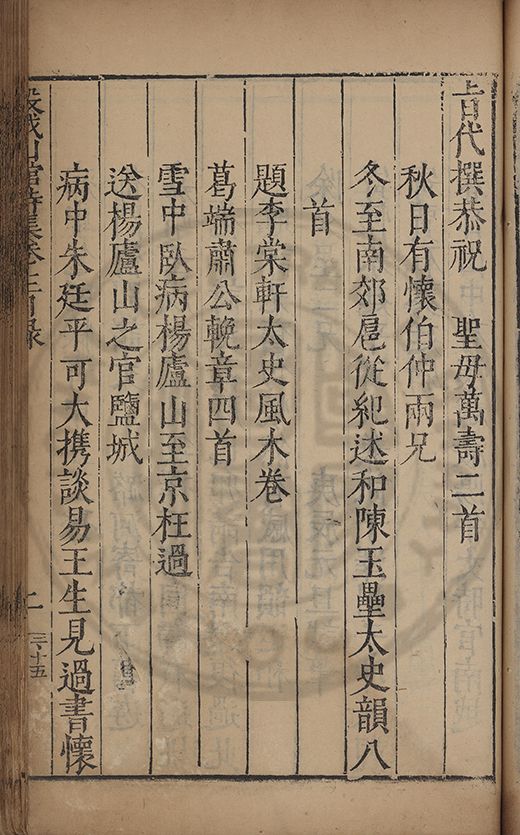 古代撰恭祝　聖母萬壽二首
秋日有懷伯仲兩兄
冬至南郊扈從紀述和陳玉壘太史韻八
首
題李棠軒太史風木卷
葛端肅公輓章四首
雪中臥病楊廬山至京枉過
送楊廬山之官鹽城
病中朱廷平可大携談易王生見過書懷
山館詩集卷上目錄
三十五